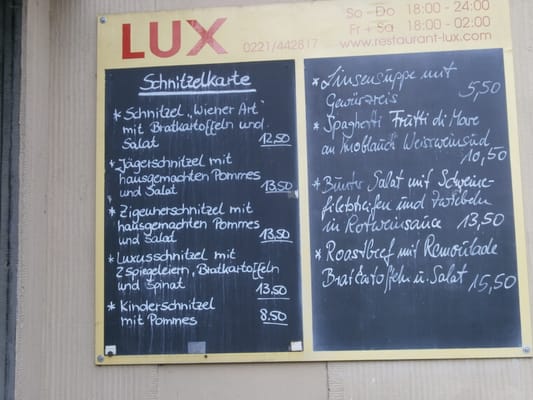 LUX 0221/442817
So - Do 18:00 - 24:00
Fr + Sa 18:00 - 02:00
www.restaurant-lux.com
Schnitzelkarte
* Schnitzel „Wiener Art"
mit Bratkartoffeln und
Salat 12,50
* Jägerschnitzel mit
hausgemachten Pommes
und Salat 13,50
* Zigeunerschnitzel mit
hausgemachten Pommes
und Salad 13,50
* Luxusschnitzel mit
2 Spiegeleiern, Bratkartoffeln
und Spinat 13,50
* Kinderschnitzel
mit Pommes 8.50
* Linsensuppe mit
Gewürzreis 5,50
* Spaghetti Frutti di Mare
an Knoblauch Weissweinsud
10,50
* Bunter Salat mit Schweine-
filetstreifen und Zwiebeln
in Rotweinsauce 13,50
* Roastbeef mit Remoulade
Bratkartoffeln u. Salat 15,50